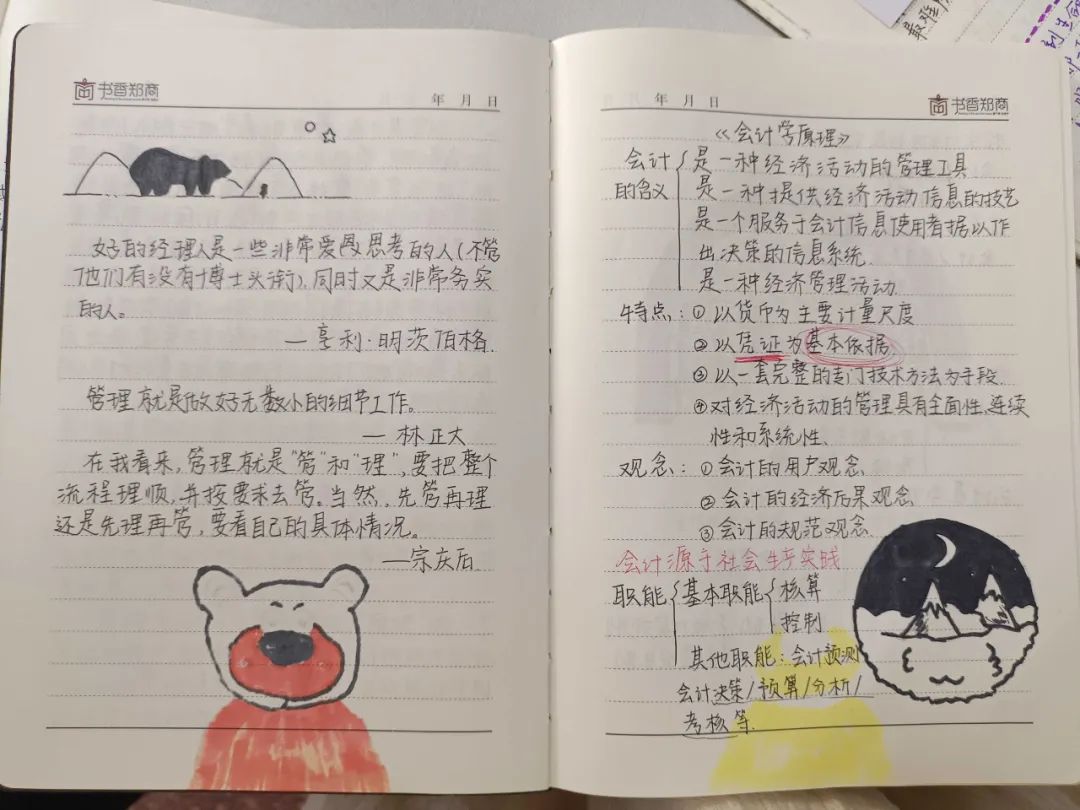 书香郑商
年 月 日
好的经理人是一些非常爱思考的人(不管
他们有没有博士头衔),同时又是非常务实
的人。
— 亨利·明茨伯格
管理就是做好无数小的细节工作。
— 林正大
在我看来,管理就是"管"和"理",要把整个
流程理顺,并按要求去管。当然,先管再理
还是先理再管,要看自己的具体情况。
—宗庆后
年 月 日
书香郑商
《会计学原理》
会计的含义
是一种经济活动的管理工具
是一种提供经济活动信息的技艺
是一个服务于会计信息使用者据以作
出决策的信息系统.
是一种经济管理活动
特点:①以货币为主要计量尺度
②以凭证为基本依据
③以一套完整的专门技术方法为手段.
④对经济活动的管理具有全面性、连续
性和系统性.
观念:①会计的用户观念.
②会计的经济后果观念.
③会计的规范观念.
会计源于社会生产实践
职能 基本职能 核算
控制
其他职能:会计预测
会计决策/预算/分析/
考核等.